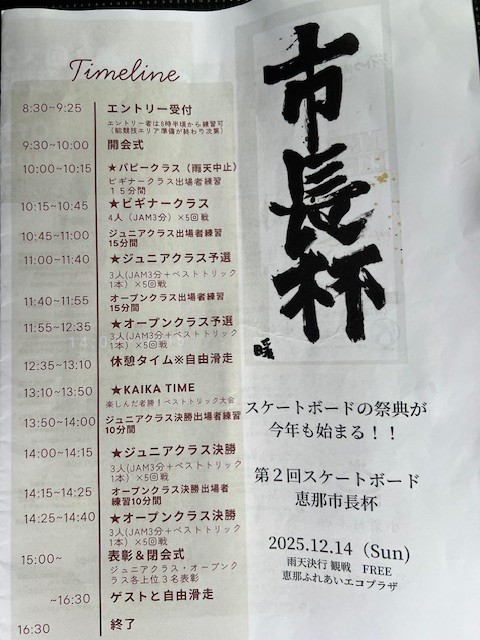 Timeline
8:30~9:25 エントリー受付
エントリー者は8時半頃から練習可
（競技エリア準備が終わり次第）
9:30~10:00 開会式
10:00~10:15 ★パピークラス（雨天中止）
ビギナークラス出場者練習
１５分間
10:15~10:45 ★ビギナークラス
4人（JAM3分）×5回戦
10:45~11:00 ジュニアクラス出場者練習
15分間
11:00~11:40 ★ジュニアクラス予選
3人(JAM3分＋ベストトリック
1本）×5回戦
11:40~11:55 オープンクラス出場者練習
15分間
11:55~12:35 ★オープンクラス予選
3人(JAM3分＋ベストトリック
1本）×5回戦
12:35~13:10 休憩タイム※自由滑走
13:10~13:50 ★KAIKA TIME
楽しんだ者勝！ベストトリック大会
13:50~14:00 ジュニアクラス決勝出場者練習
10分間
14:00~14:15 ★ジュニアクラス決勝
3人(JAM3分＋ベストトリック
1本）×5回戦
14:15~14:25 オープンクラス決勝出場者
練習10分間
14:25~14:40 ★オープンクラス決勝
3人(JAM3分＋ベストトリック
1本）×5回戦
15:00~ 表彰＆閉会式
ジュニアクラス・オープンク
ラス各上位３名表彰
~16:30 ゲストと自由滑走
16:30 終了
市長杯
暖
スケートボードの祭典が
今年も始まる！！
第２回スケートボード
恵那市長杯
2025.12.14（Sun)
雨天決行 観戦 FREE
恵那ふれあいエコプラザ